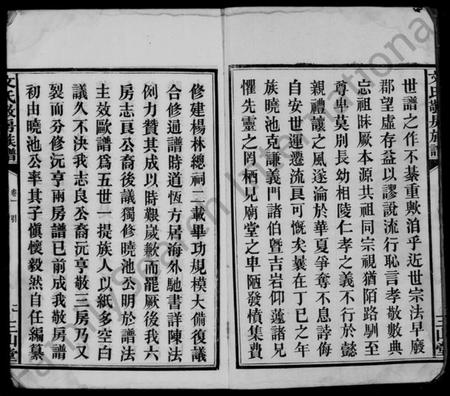 文氏敬房族譜
世譜之作不綦重歟洎乎近世宗法早廢
郡望虛存益以謬說流行恥言孝敬數典
忘祖昧厥本源共祖同宗視猶陌路馴至
尊卑莫別長幼相陵仁孝之義不行於懿
親禮讓之風遂淪於華夏爭奪不息誖侮
自安世運遷流良可慨矣曩在丁巳之年
族曉池克謙義門諸伯暨吉岩仰蓮諸兄
懼先靈之罔栖兄廟堂之卑陋發憤集費
三山堂
修建楊林總祠二載畢功規模大備復議
合修通譜時道恆方居海外馳書詳陳法
例力贊其成以時艱歲歉而罷厥後我六
房志良公裔後議獨修曉池公明於譜法
主效歐譜爲五世一提族人以紙多空白
議久不決我志良公裔沅亨敬三房乃又
裂而分修沅亨兩房譜已前成我敬房譜
初由曉池公率其子愼懷毅然自任編纂
文氏敬房族譜
卷一 引
三山堂
FamilySearch International